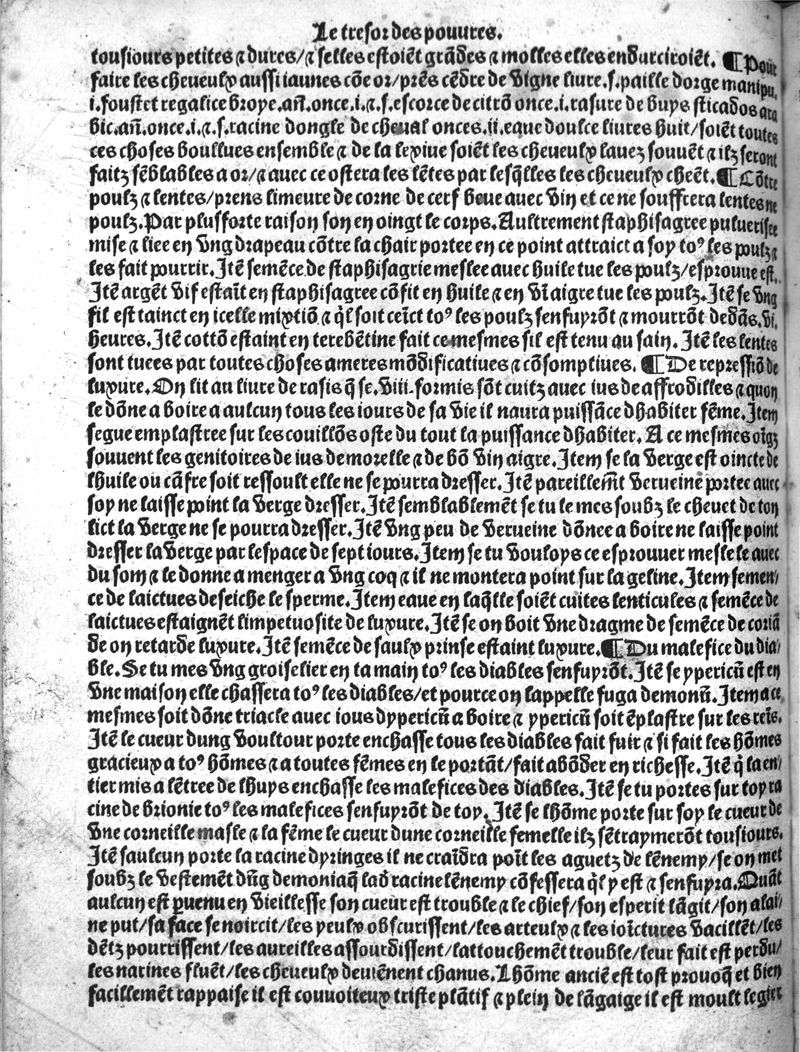 Le tresor des pouures.
tousiours petites ⁊ dures/⁊ selles estoiẽt grãdes ⁊ molles elles endurciroiẽt. ¶ Pour
faire les cheueulx aussi iaunes cõe or/prẽs cẽdre de vigne liure.ſ.paille dorge manipu.
i.foustet regalice broye.añ.once.i.⁊.ſ.escorce de citrõ once.i.rasure de buys sticados ara
bic.añ.once.i.⁊.ſ.racine dongle de cheual onces.ii.eque doulce liures huit/soiẽt toutes
ces choses boullues ensemble ⁊ de la lexiue soiẽt les cheueulx lauez souuẽt ⁊ ilz seront
faitz sẽblables a or/⁊ auec ce ostera les lẽtes par lesq̃lles les cheueulx cheẽt. ¶ Cõtre
poulz ⁊ lentes/prens limeure de corne de cerf beue auec vin et ce ne souffrera lentes ne
poulz. Par plusforte raison son en oingt le corps. Aultrement staphisagree puluerisee
mise ⁊ liee en vng drapeau cõtre la chair portee en ce point attraict a soy toꝰ les poulz ⁊
les fait pourrir. Itẽ semẽce de staphisagrie meslee auec huile tue les poulz/esprouue est.
Itẽ argẽt vif estaĩt en staphisagree cõfit en huile ⁊ en vĩaigre tue les poulz. Itẽ se vng
fil est tainct en icelle mixtiõ ⁊ q̃l soit ceĩct toꝰ les poulz senfuyrõt ⁊ mourrõt dedãs.vi.
heures. Itẽ cottõ estaint en terebẽtine fait ce mesmes sil est tenu au sain. Itẽ les lentes
sont tuees par toutes choses ameres mõdificatiues ⁊ cõsomptiues. ¶ De repressiõ de
luxure. On lit au liure de rasis q̃ se.viii.formis sõt cuitz auec ius de affrodilles ⁊ quon
le dõne a boire a aulcun tous les iours de sa vie il naura puissãce dhabiter fẽme. Item
segue emplastree sur les couillõs oste du tout la puissance dhabiter. A ce mesmes oĩgz
souuent les genitoires de ius de morelle ⁊ de bõ vin aigre. Item se la verge est oincte de
lhuile ou cãfre soit ressoult elle ne se pourra dresser. Itẽ pareillem̃t verueine portee auec
soy ne laisse point la verge dresser. Itẽ semblablemẽt se tu le mes soubz le cheuet de ton
lict la verge ne se pourra dresser. Itẽ vng peu de verueine dõnee a boire ne laisse point
dresser la verge par lespace de sept iours. Item se tu vouloys ce esprouuer mesle le auec
du son ⁊ le donne a menger a vng coq ⁊ il ne montera point sur la geline. Item semen/
ce de laictues deseiche le sperme. Item eaue en laq̃lle soiẽt cuites lenticules ⁊ semẽce de
laictues estaignẽt limpetuosite de luxure. Itẽ se on boit vne dragme de semẽce de coriã
de on retarde luxure. Itẽ semẽce de saulx prinse estaint luxure. ¶ Du malefice du dia/
ble. Se tu mes vng groiselier en ta main toꝰ les diables senfuyrõt. Itẽ se ypericũ est en
vne maison elle chassera toꝰ les diables/et pource on lappelle fuga demonũ. Item a ce
mesmes soit dõne triacle auec ious dypericũ a boire ⁊ ypericũ soit ẽplastre sur les reĩs.
Itẽ le cueur dung voultour porte enchasse tous les diables fait fuir ⁊ si fait les hõmes
gracieux a toꝰ hõmes ⁊ a toutes fẽmes en le portãt/fait abõder en richesse. Itẽ q̃ la en/
tier mis a lẽtree de lhuys enchasse les malefices des diables. Itẽ se tu portes sur toy ra
cine de brionie toꝰ les malefices senfuyrõt de toy. Itẽ se lhõme porte sur soy le cueur de
vne corneille masle ⁊ la fẽme le cueur dune corneille femelle ilz sẽtraymerõt tousiours.
Itẽ saulcun porte la racine dyringes il ne craĩdra poĩt les aguetz de lẽnemy/se on met
soubz le vestemẽt dũg demoniaq̃ lad̃ racine lẽnemy cõfessera q̃l y est ⁊ senfuyra. Quãt
aulcun est ꝑuenu en vieillesse son cueur est trouble ⁊ le chief/son esperit lãgit/son alai/
ne put/sa face se noircit/les yeulx obscurissent/les arteulx ⁊ les ioĩctures vacillẽt/les
dẽtz pourrissent/les aureilles assourdissent/lattouchemẽt trouble/leur fait est perdu/
les narines fluẽt/les cheueulx deuiẽnent chanus. Lhõme anciẽ est tost prouoq̃ et bien
facillemẽt rappaise il est couuoiteux triste plãtif ⁊ plein de lãgaige il est moult legier